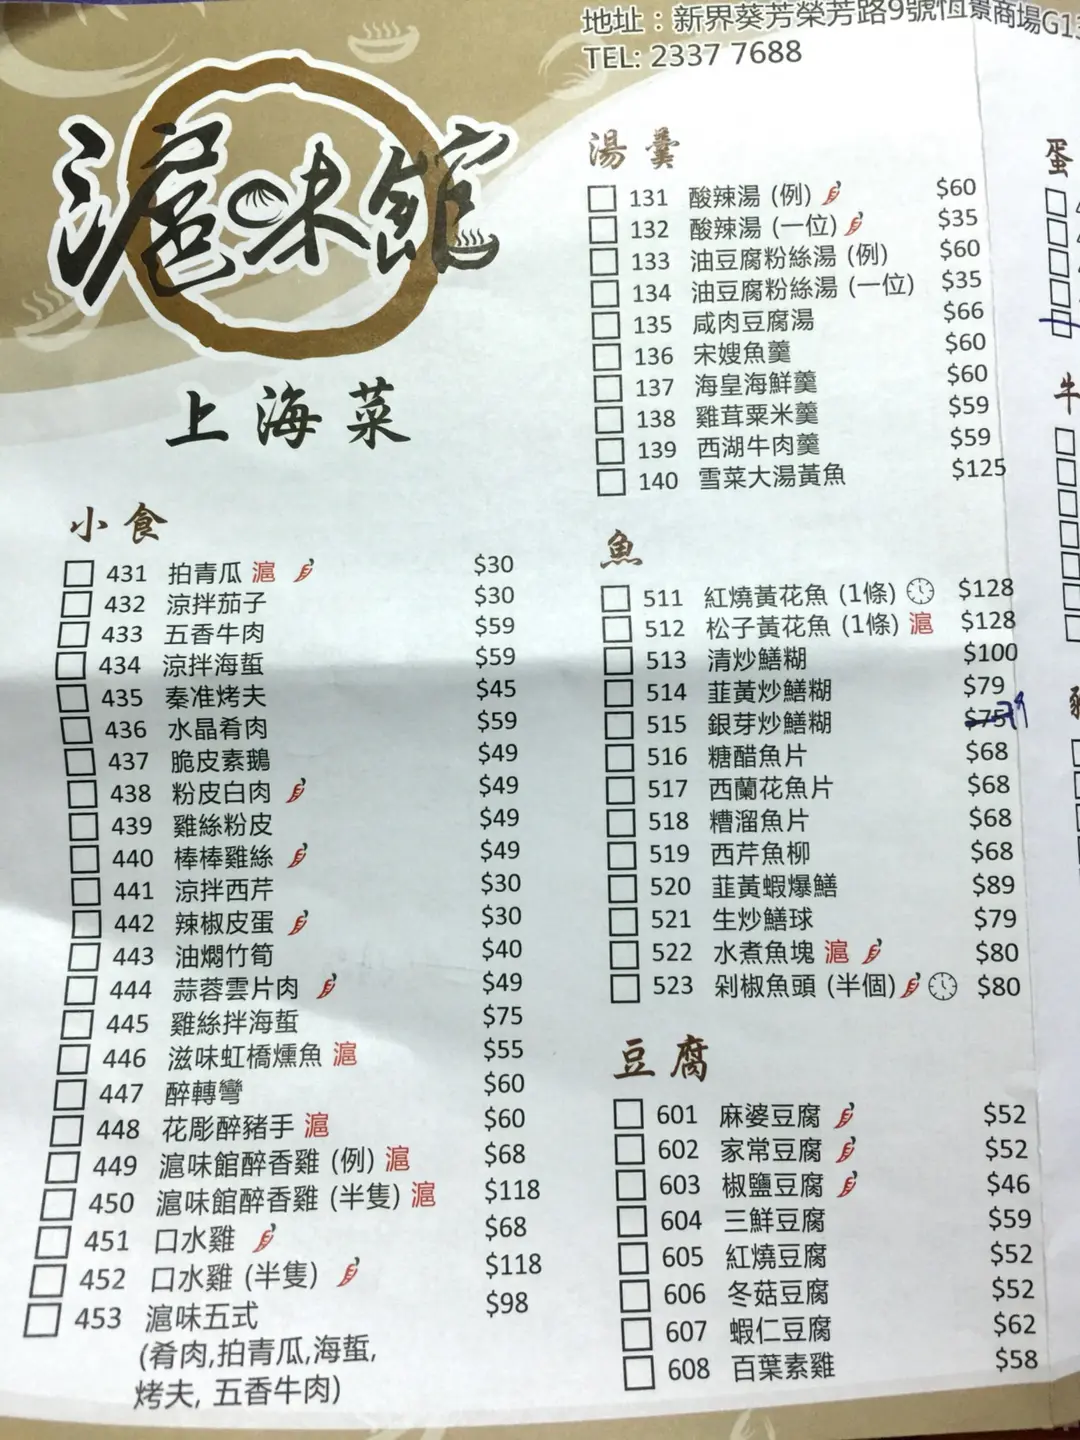 地址：新界葵芳榮芳路9號恆景商場G1
TEL: 2337 7688
滬味館
上海菜
小食
431 拍青瓜 滬 $30
432 涼拌茄子 $30
433 五香牛肉 $59
434 涼拌海蜇 $59
435 秦准烤夫 $45
436 水晶肴肉 $59
437 脆皮素鵝 $49
438 粉皮白肉 $49
439 雞絲粉皮 $49
440 棒棒雞絲 $49
441 涼拌西芹 $30
442 辣椒皮蛋 $30
443 油燜竹筍 $40
444 蒜蓉雲片肉 $49
445 雞絲拌海蜇 $75
446 滋味虹橋燻魚 滬 $55
447 醉轉彎 $60
448 花彫醉豬手 滬 $60
449 滬味館醉香雞 (例) 滬 $68
450 滬味館醉香雞 (半隻) 滬 $118
451 口水雞 $68
452 口水雞 (半隻) $118
453 滬味五式 $98
(肴肉,拍青瓜,海蜇,
烤夫, 五香牛肉)
湯羹
131 酸辣湯 (例) $60
132 酸辣湯 (一位) $35
133 油豆腐粉絲湯 (例) $60
134 油豆腐粉絲湯 (一位) $35
135 咸肉豆腐湯 $66
136 宋嫂魚羹 $60
137 海皇海鮮羹 $60
138 雞茸粟米羹 $59
139 西湖牛肉羹 $59
140 雪菜大湯黃魚 $125
魚
511 紅燒黃花魚 (1條) $128
512 松子黃花魚 (1條) 滬 $128
513 清炒鱔糊 $100
514 韮黃炒鱔糊 $79
515 銀芽炒鱔糊 $75 79
516 糖醋魚片 $68
517 西蘭花魚片 $68
518 糟溜魚片 $68
519 西芹魚柳 $68
520 韮黃蝦爆鱔 $89
521 生炒鱔球 $79
522 水煮魚塊 滬 $80
523 剁椒魚頭 (半個) $80
豆腐
601 麻婆豆腐 $52
602 家常豆腐 $52
603 椒鹽豆腐 $46
604 三鮮豆腐 $59
605 紅燒豆腐 $52
606 冬菇豆腐 $52
607 蝦仁豆腐 $62
608 百葉素雞 $58
蛋
牛